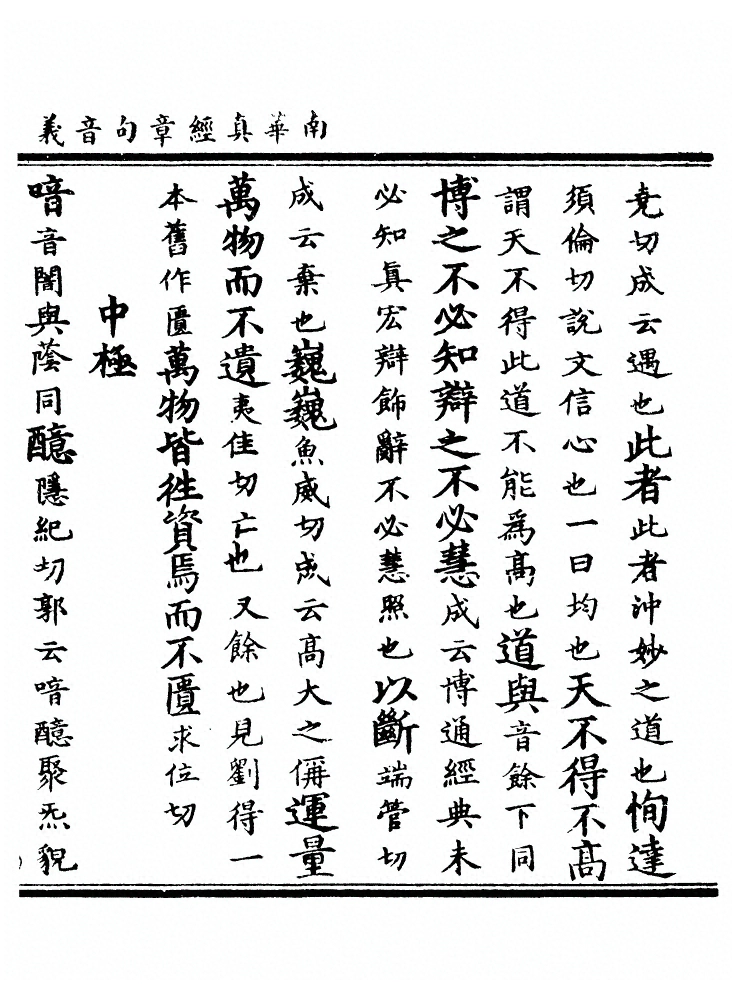 南華真經章句音義
堯切成云遇也此者此者沖妙之道也恂達
須倫切說文信心也一曰均也天不得不髙
謂天不得此道不能為髙也道與音餘下同
博之不必知辯之不必慧成云博通經典未
必知真宏辯飾辭不必慧照也以斷端管切
成云棄也巍巍魚威切成云髙大之偁運量
萬物而不遺夷隹切亡也又餘也見劉得一
本舊作匱萬物皆往資焉而不匱求位切
中極
喑音闇與蔭同醷隱紀切郭云喑醷聚炁貌